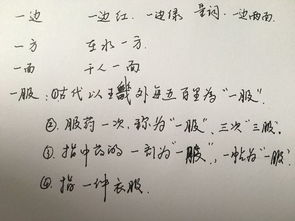 一边 一边红.一边绿 量词.一边两面
一方 在水一方.
一面 千人一面
一服:①古代以王畿外每五百里为“一服”.
②.服药一次.称为“一服”,三次“三服”.
③.指中药的一剂为“一服”,一帖为“一服”
④.指一件衣服.